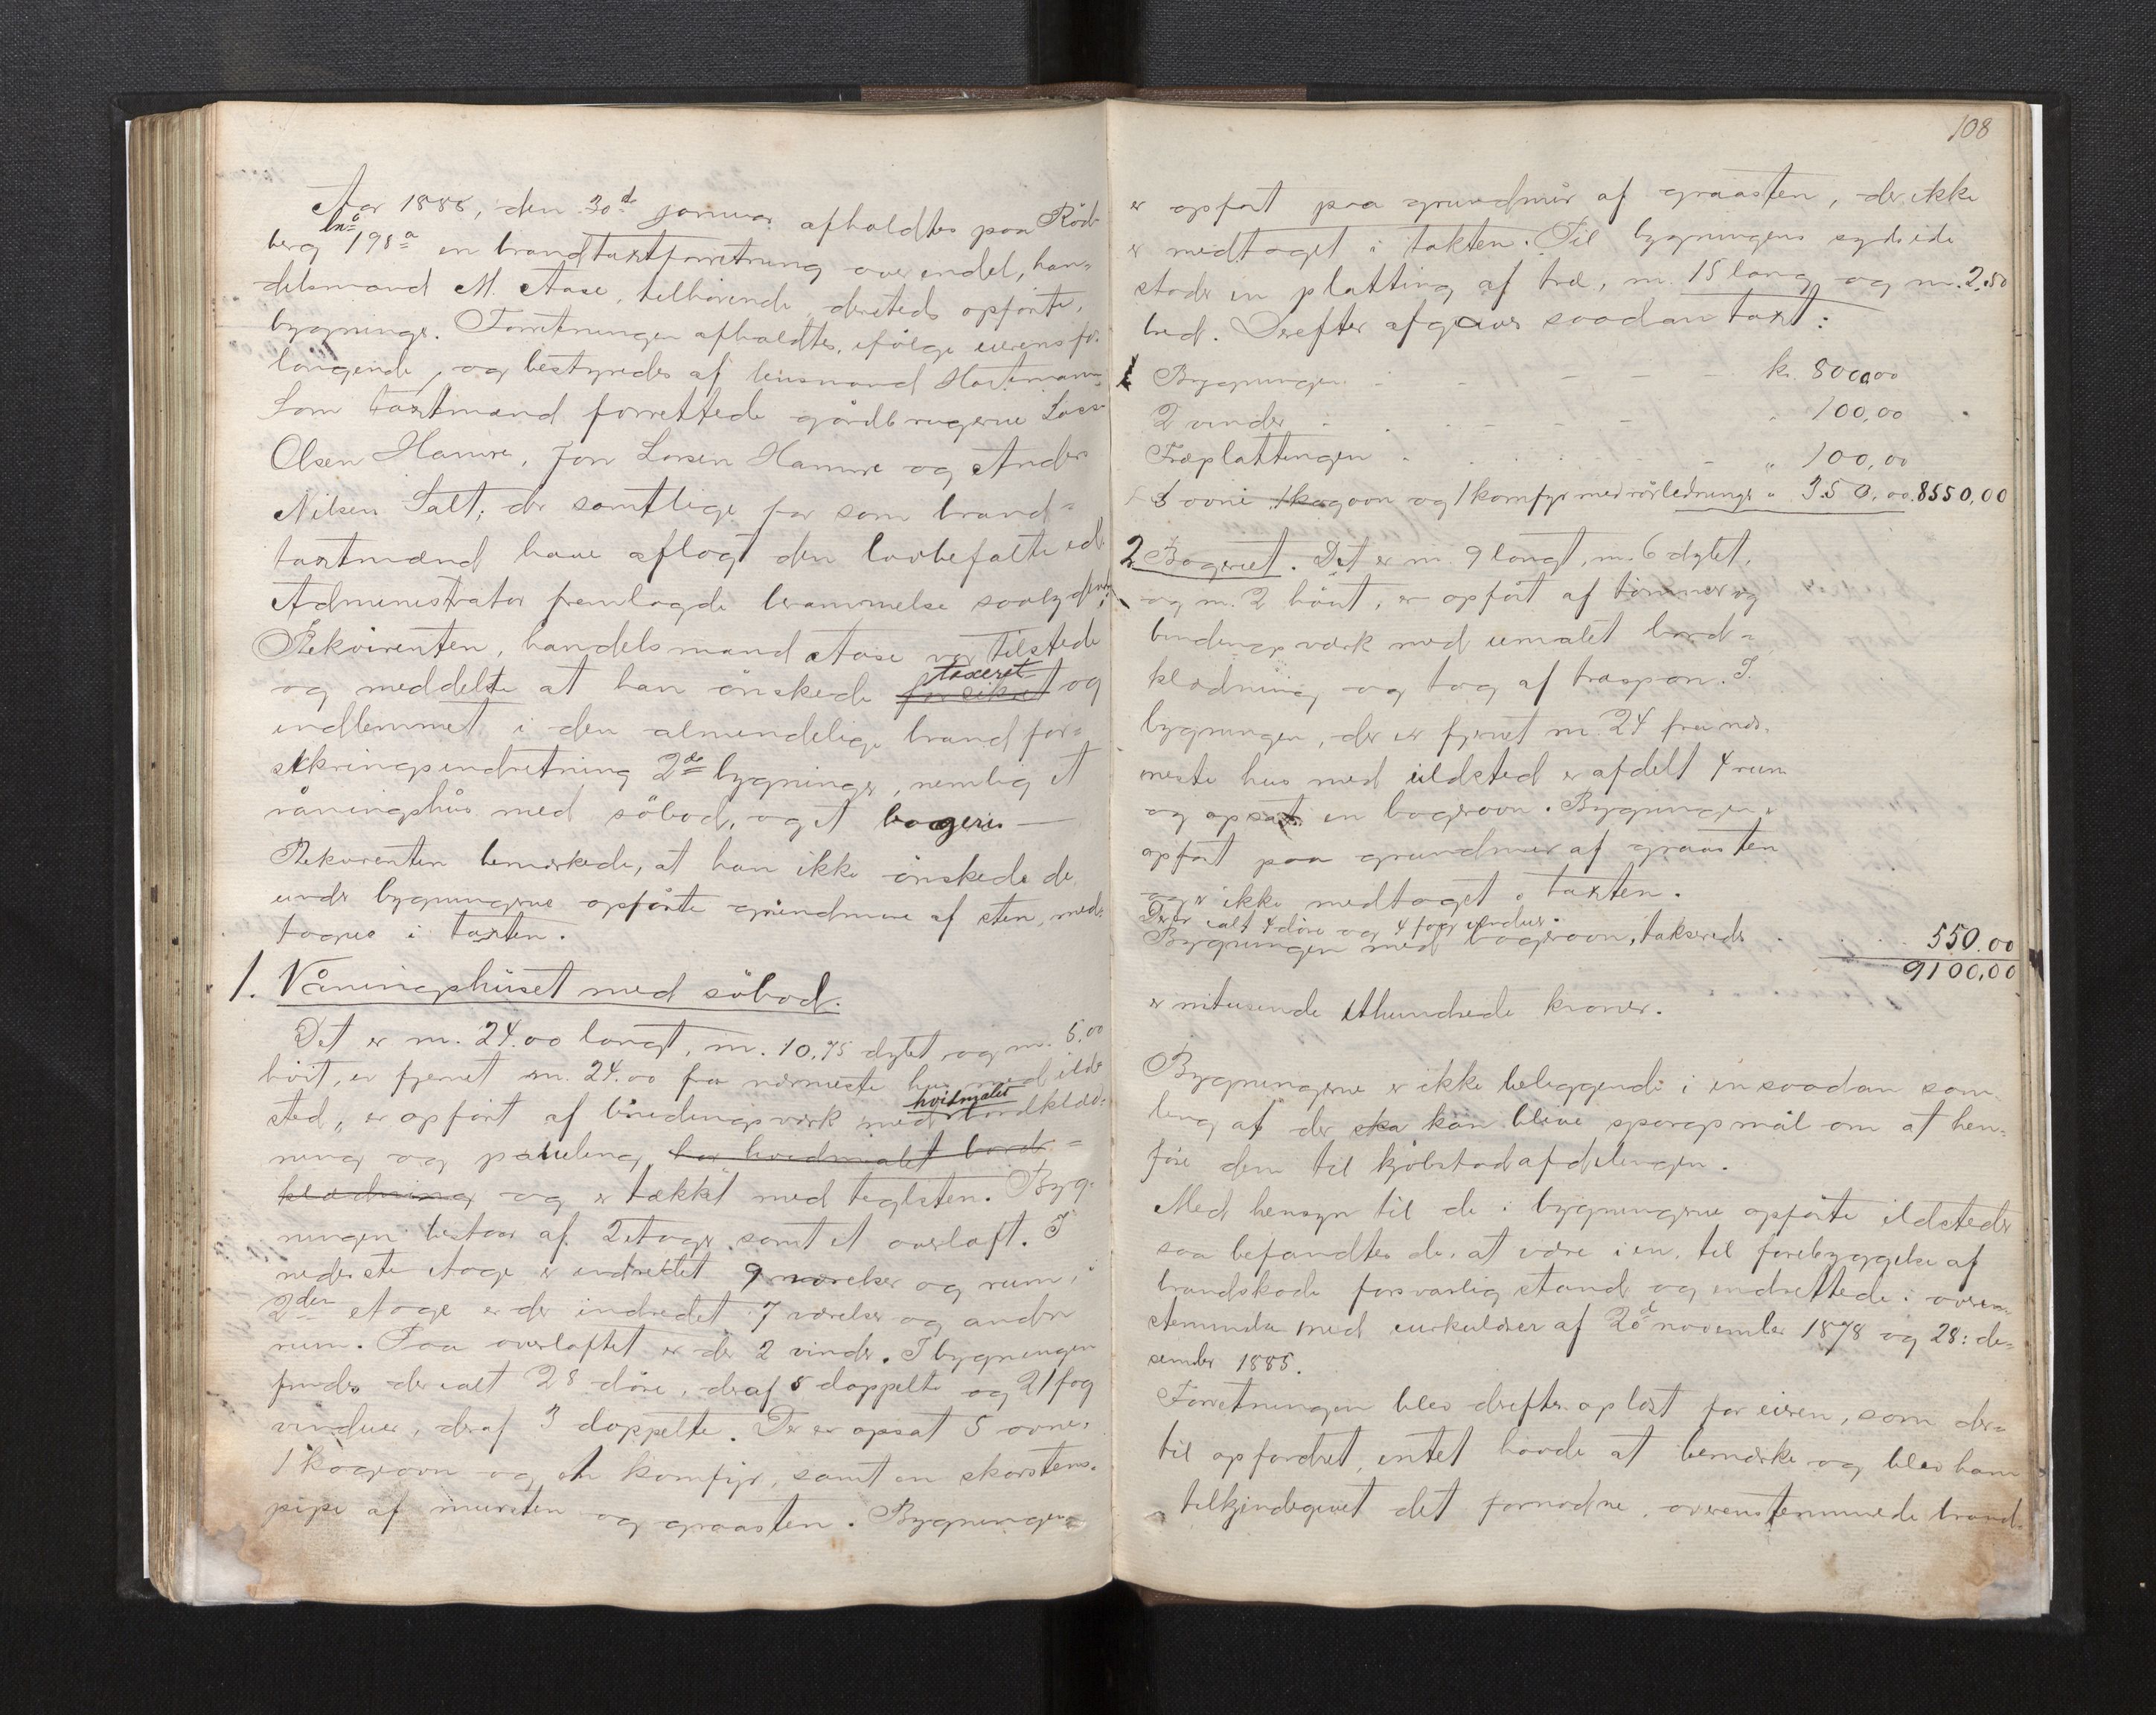 Aar 1888, den 30d januar afholdtes paa Rödberg
lnº 198a en brandtaxtforretning over endel, han-
delsmand M. Aase, tilhörende, dersteds opförte,
bygninger. Forretningen afholdtes, ifölge eierens for-
langende, og bestyredes af lensmand Hartmann.
Som taxtmænd forrettede gårdbrugerne Lars
Olsen Hamre, Jon Larsen Hamre og Anders
Nilsen Salt, der samtlige för som brand-
taxtmænd have aflagt den lovbefalte ed.
Administrator fremlagde berammelse saalydende:
Rekvirenten, handelsmand Aase var tilstede
og meddelte at han önskede taxeret og
indlemmet i den almindelige brandfor-
sikringsindretning 2de bygninger, nemlig et
våningshus med söbod, og et bageri
Rekvirenten bemærkede, at han ikke önskede de
under bygningerne opförte grundmure af sten, med-
tagne i taxten.
1. Våningshuset med söbod.
Det er m. 24.00 langt, m. 10.75 dybt og m. 5.00
höit, er fjernet m. 24.00 fra nærmeste hus med ild-
sted, er opfört af bindingsværk med hvidmalet bordklæd-
ning og paneling har hvidmalet bord-
klædning og er tækket med teglsten. Byg-
ningen bestaar af 2 etager samt et overloft. I
nederste etage er indrettet 9 værelser og rum, i
2den etage er der indredet 7 værelser og andre
rum. Paa overloftet er der 2 vinder. I bygningen
findes der ialt 28 döre, deraf 5 doppelte og 21 fag
vinduer, deraf 3 doppelte. Der er opsat 5 ovne,
1 kogeovn og en komfyr, samt en skorstens-
pipe af mursten og graasten. Bygningen
108
er opfört paa grundmur af graasten, der ikke
er medtaget i takten. Til bygningens sydside
stöder en platting af træ, m. 15 lang og m. 2.50
bred. Derefter afgaves saadan taxt:
1 Bygningen kr. 8000,00
2 vinder " 100,00
Træplattingen " 100,00
5 ovne 1 kogoon og 1 komfyr med rörledninger " 350,00. 8550,00
2. Bageriet. Det er m. 9 langt, m. 6 dybt,
og m. 2 höit, er opfört af tömmer og
bindingsværk med umalet bord-
klædning og tag af træspon. I
bygningen, der er fjernet m. 24 fra nær-
meste hus med ildsted er afdelt 4 rum
og opsat en bagerovn. Bygningen er
opfört paa grundmur af graasten
og er ikke medtaget i taxten.
Der er ialt 4 döre og 4 fag vinduer.
Bygningen med bagerovn, takseredes 550.00
9100,00
er nitusende ethundrede kroner.
Bygningerne er ikke beliggende i en saadan sam-
ling af der ska kan blive spörgsmål om at hen-
före dem til kjöbstadafdelingen.
Med hensyn til de i bygningerne opförte ildsteder
saa befandtes de, at være i en, til forebyggelse af
brandskade forsvarlig stand og indrettede i overens-
stemmelse med cirkulærer af 20d november 1878 og 28: de-
sember 1885.
Forretningen blev derefter oplæst for eieren, som der-
til opfordret, intet havde at bemærke og blev ham
tilkjendegivet det fornödne overenstemmende brand-